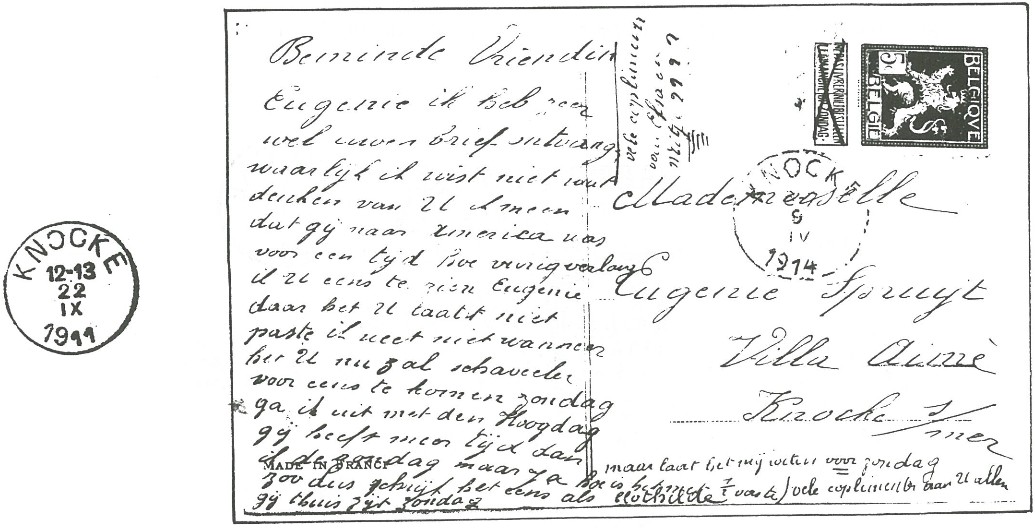 KNOCKE
12-13
22
IX
1911
Beminde Vriendin
Eugenie ik heb zeer
wel uwen brief ontvang
waarlijk ik wist niet wat
denken van U ik meen
dat gij naar America was
voor een tijd hoe vurig verlang
ik U eens te zien Eugenie
daar het U laatst niet
paste ik weet niet wanneer
het U nu zal
voor eens te komen zondag
ga ik uit met den Hoogdag
gij heeft meer tijd dan
ik de zondag maar
zoo dus schrijf het eens als
gij thuis zijt zondag
MADE IN FRANCE
vele coplimenten
van
BELGIQUE
BELGIË
5c
KNOCKE
9
IV
1914
Mademoiselle
Eugenie Spruijt
Villa Aimè
Knocke s/mer
maar laat het mij weten voor zondag
Clothilde vele coplimenten aan U allen